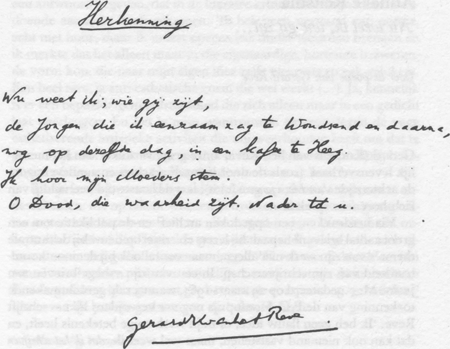 Herkenning
Nu weet ik, wie gij zijt,
de Jongen die ik eenzaam zag te Woudsend en daarna,
nog op dezelfde dag, in een kafee te Heeg.
Ik hoor mijn Moeders stem.
O Dood, die waarheid zijt. Nader tot u.
Gerard Kornelis van het Reve